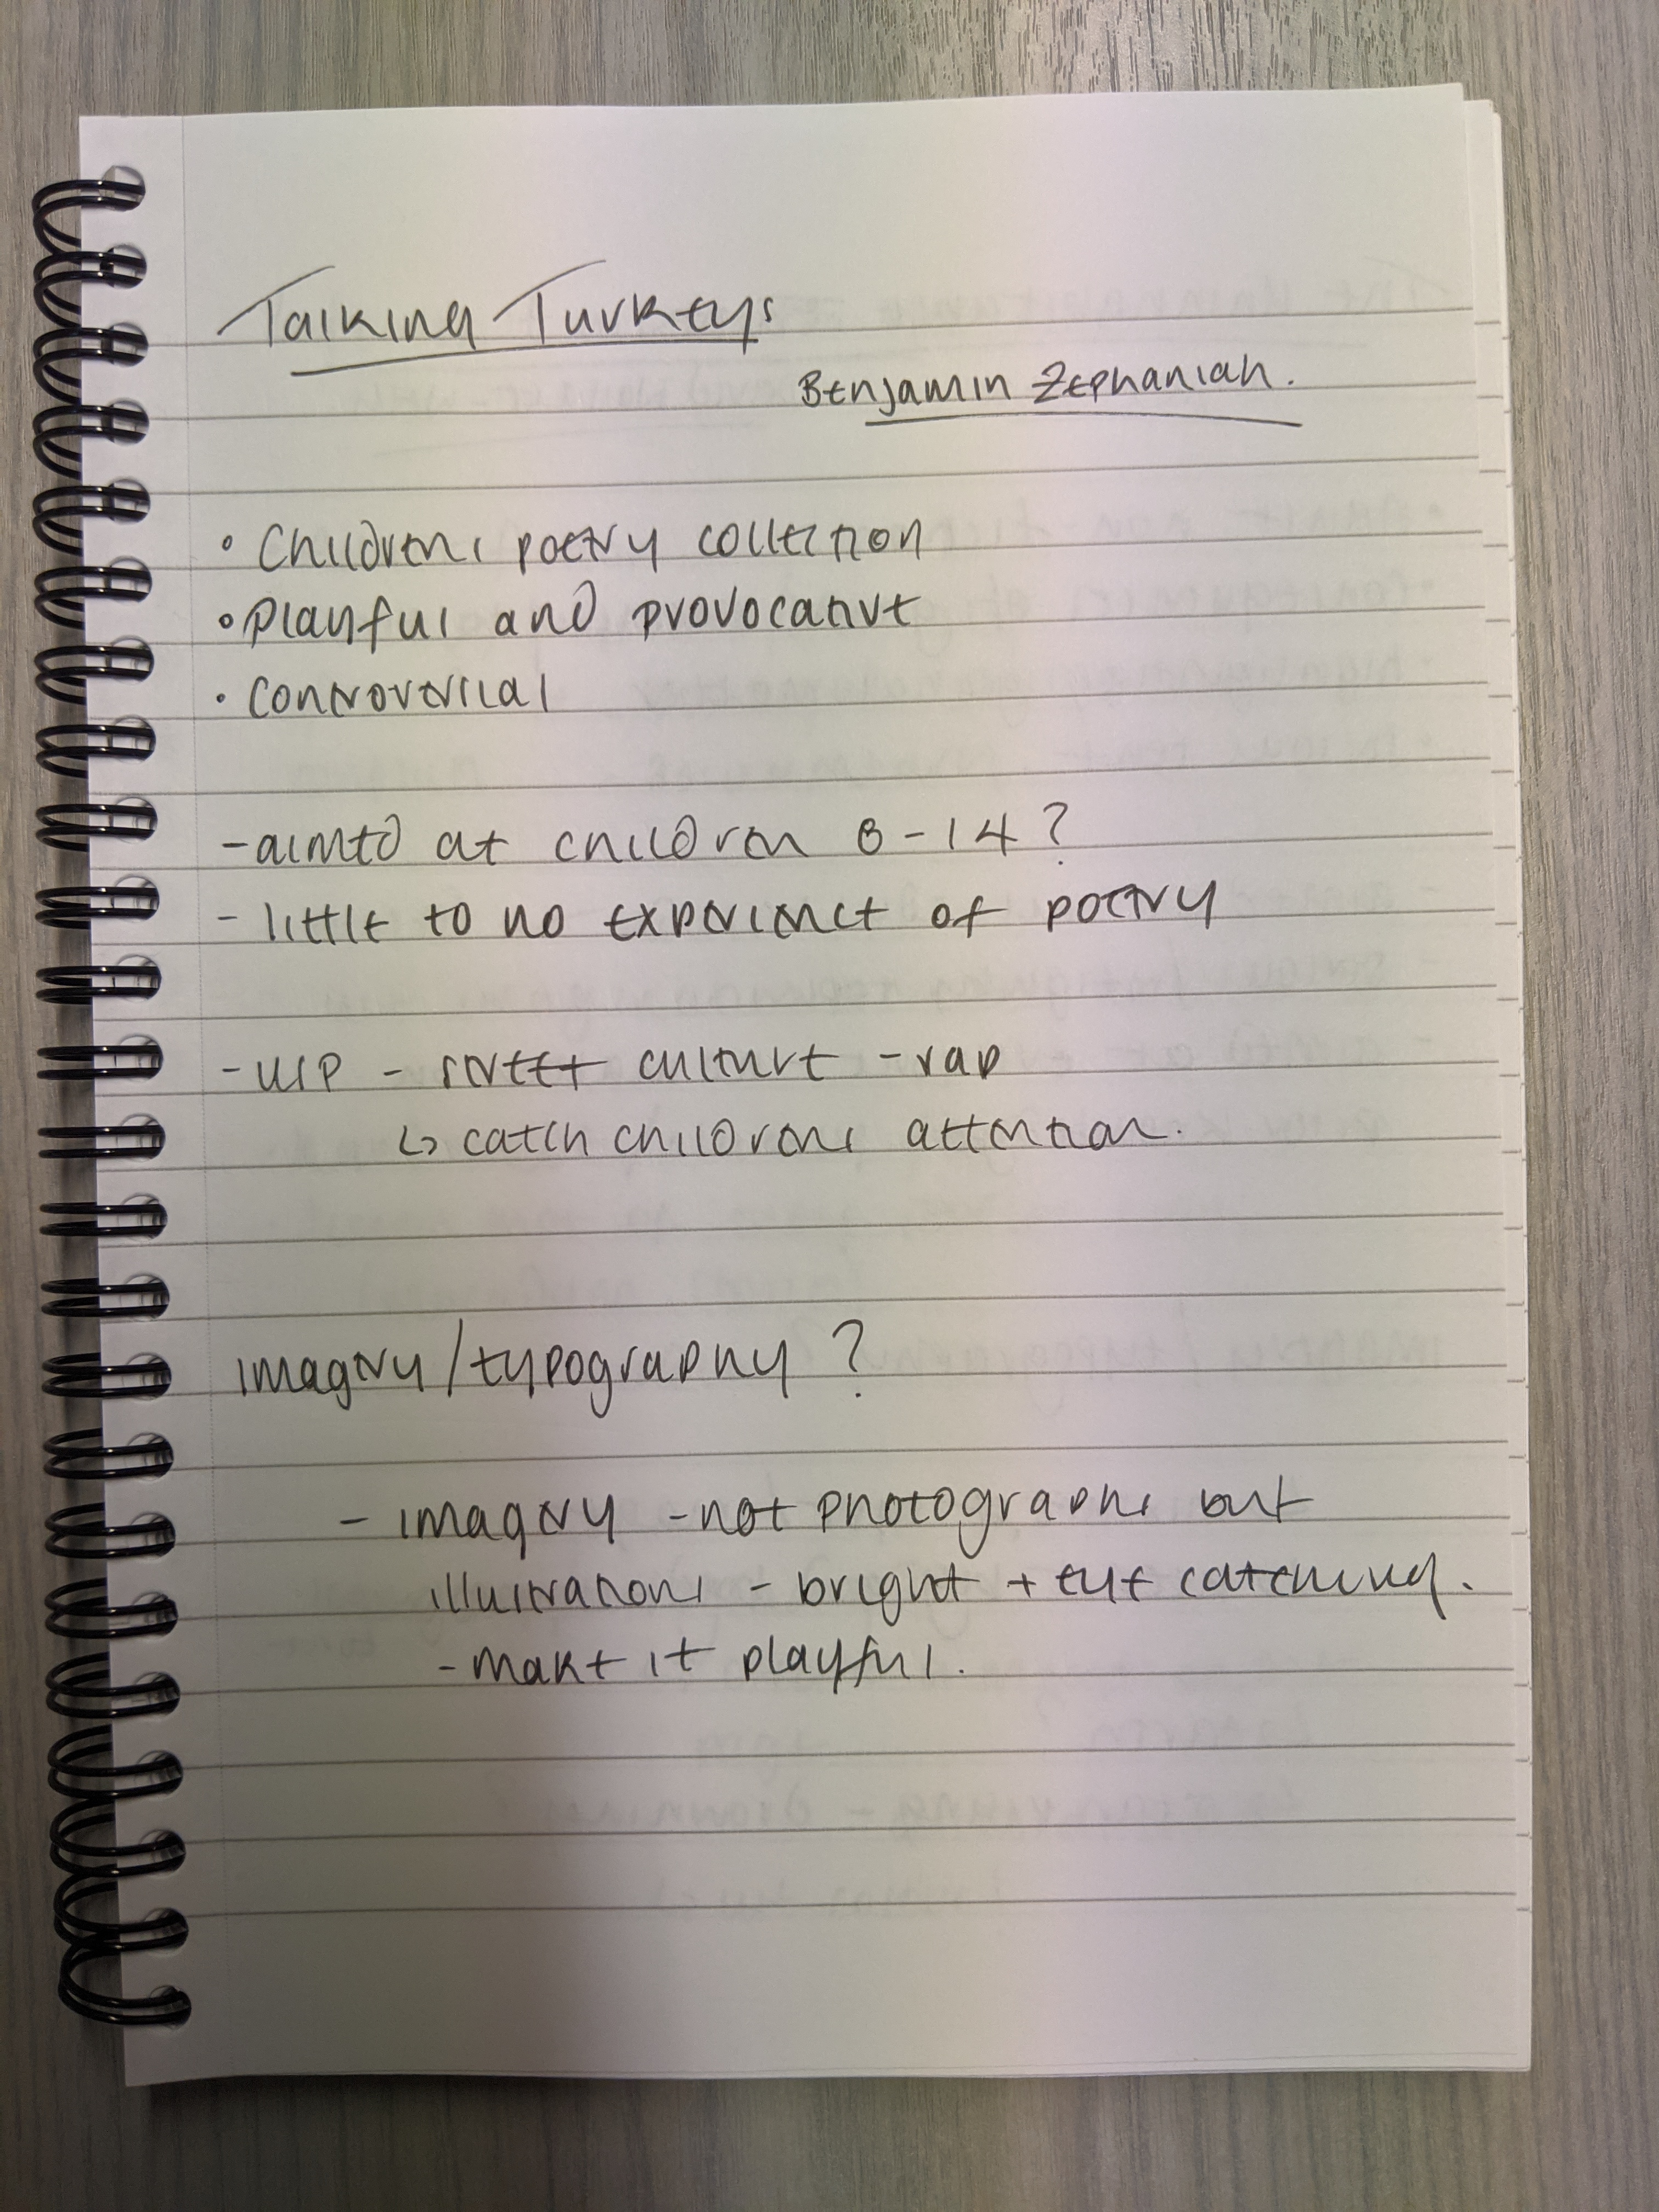 Talking Turkeys
Benjamin Zephaniah.
• Childrens poetry collection
• Playful and provocative
• Controversial
- aimed at children 8-14?
- little to no experience of poetry
- USP - street culture - rap
↳ catch childrens attention.
imagery/typography?
- imagery - not photographs but
illustrations - bright + eye catching.
- make it playful.